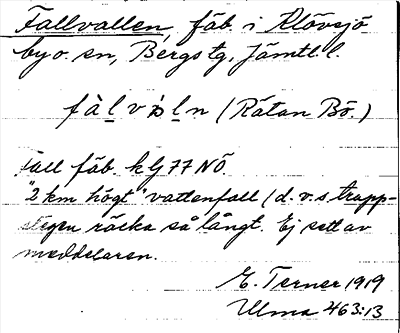 Fallvallen, fäb. i Klövsjö
by o. sn, Bergs tg, Jämtl. l.
(Rätan Bö.)
fäb. kg 77 NÖ.
"2 km högt" vattenfall (d.v.s. trapp-
stegen räcka så långt. Ej sett av
meddelaren.
E. Terner 1919
Ulma 463:13